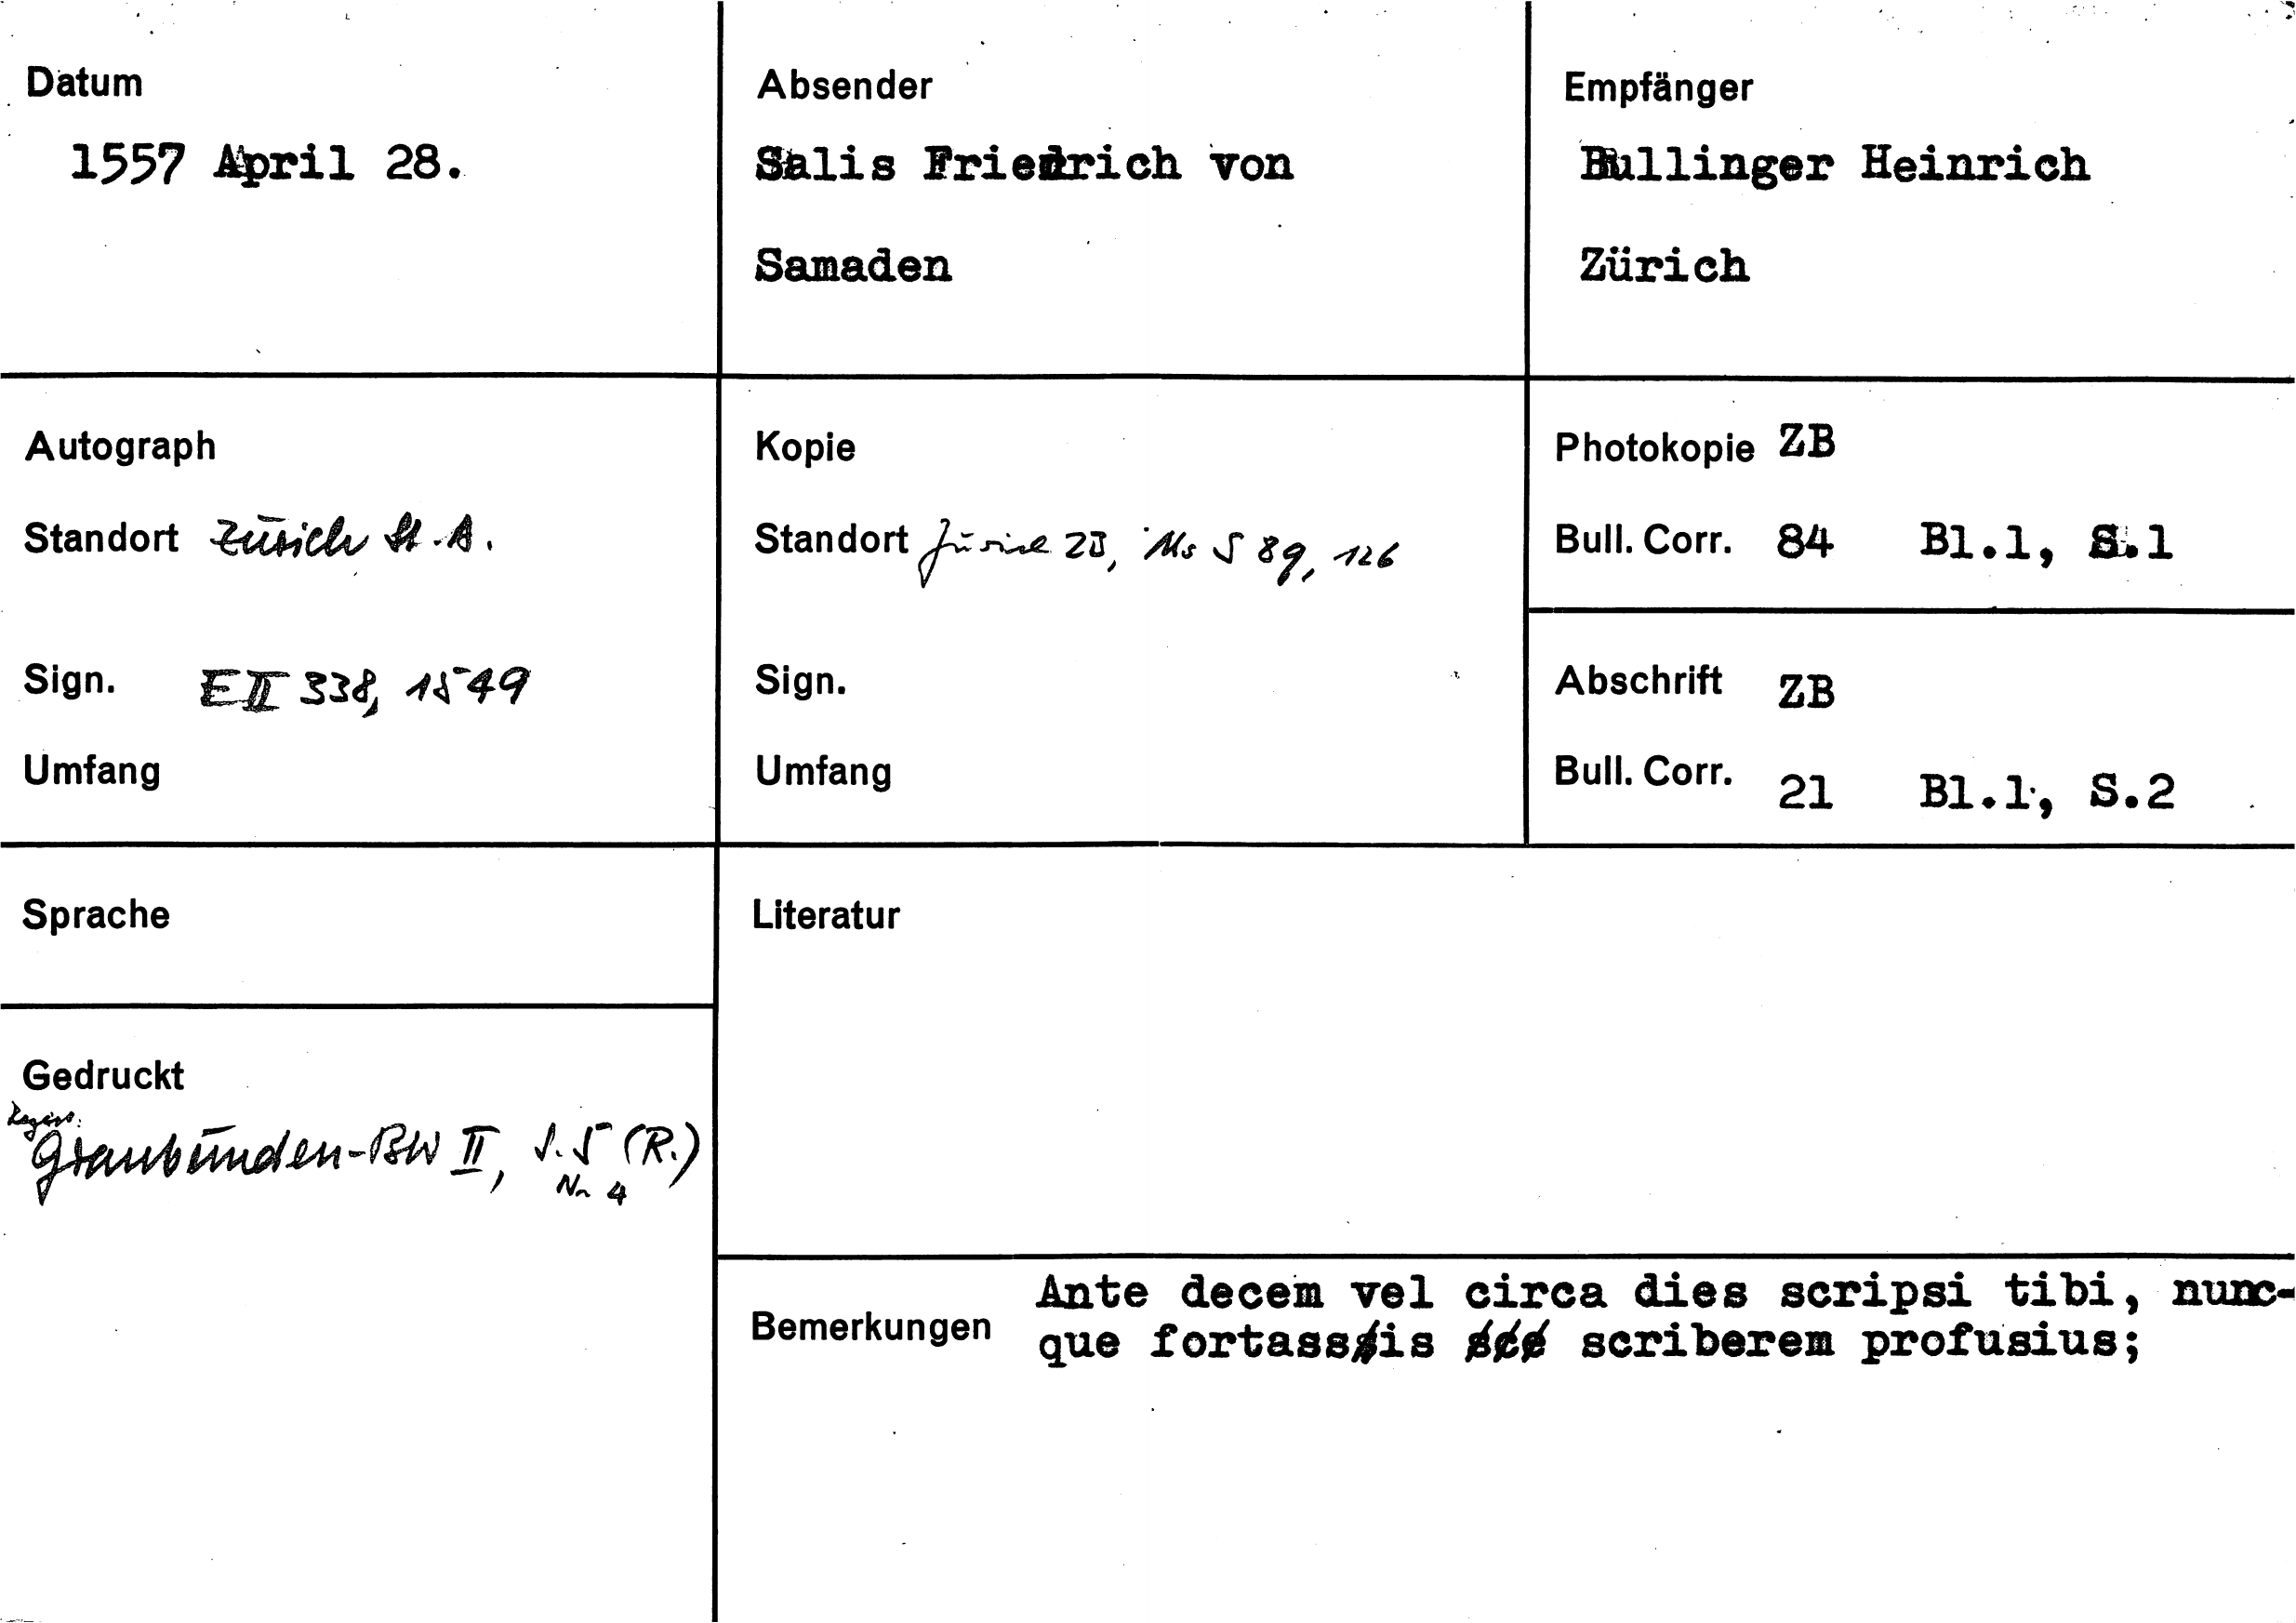 Datum
1557 April 28.
Absender
Salis Friedrich von
Samaden
Empfänger
Bullinger Heinrich
Zürich
Autograph
Standort Zürich St.A.
Sign. E II 338, 1549
Umfang
Kopie
Standort Zürich ZB, Ms S 89, 126
Sign.
Umfang
Photokopie ZB
Bull. Corr. 84 Bl.1, S.1
Abschrift ZB
Bull. Corr. 21 Bl.1, S.2
Sprache
Gedruckt
Graubünden-BW II, S. 5 (R.)
Nr 4
Literatur
Bemerkungen
Ante decem vel circa dies scripsi tibi, nunc-
que fortassis scriberem profusius;